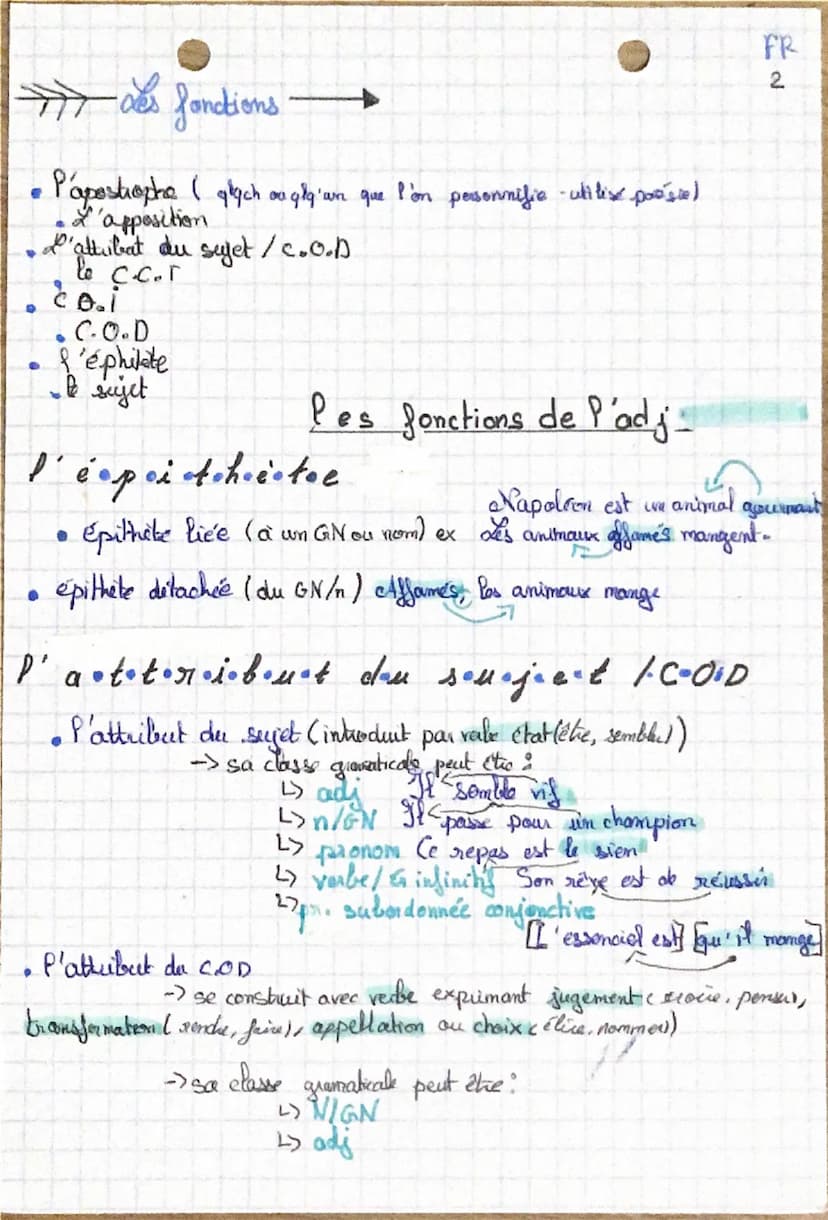 FR
2
Les fonctions
• l'apostrophe ( qlqch ou qlq'un que l'on personnifie - utilisé poésie)
• L'apposition
• L'attribut du sujet / C.O.D
• le C.C.T
• C O.i
• C.O.D
• l'éphitète
• le sujet
les fonctions de l'adj
l'épithète
Napoléon est un animal gourmant
• épithète liée (à un GN ou nom) ex Les animaux affamés mangent.
• épithète détachée (du GN/n) Affamés, les animaux mange
l'attribut du sujet /C.O.D
• l'attribut du sujet (introduit par verbe état (être, sembler))
-> sa classe gramaticale peut être :
↳ adj Il semble vif
↳ n/GN Il passe pour un champion
↳ pronom Ce repas est le sien
↳ verbe/ G infinitif Son rêve est de réussir
↳ pr. subordonnée conjonctive
[L'essenciel est] [qu'il mange]
• l'attribut du C.O.D
-> se construit avec verbe exprimant jugement ( croire, penser),
transformation ( rendre, faire), appellation ou choix ( élire, nommer)
-> sa classe gramaticale peut être :
↳ N/GN
↳ adj